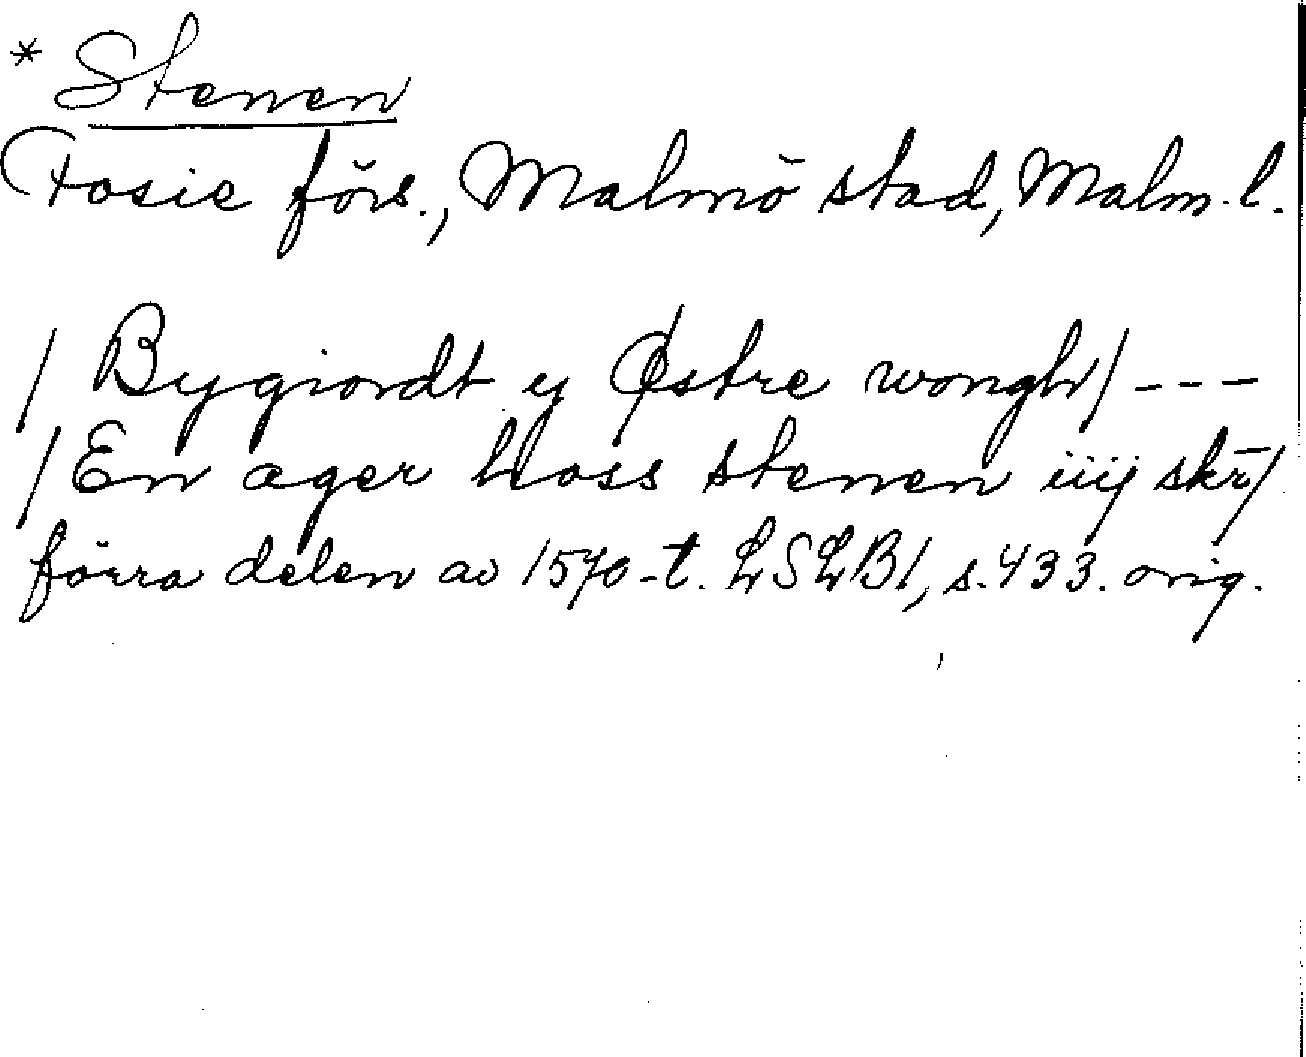 * Stenen
Fosie förs., Malmö stad, Malm. l.
/ Bygiordt y Østre wongh / ---
/ En ager hoss stenen iiij skr̄ /
förra delen av 1570-t. LSLB1, s. 433. orig.